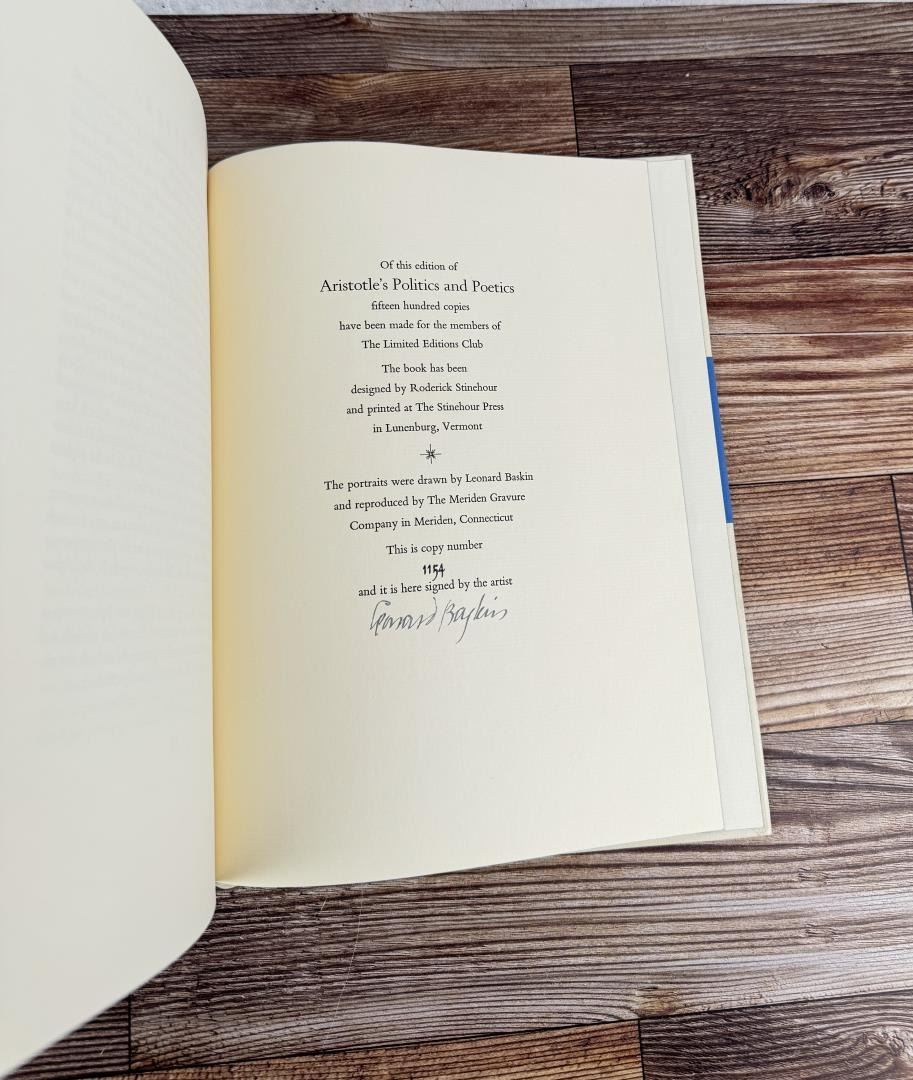 Of this edition of
Aristotle's Politics and Poetics
fifteen hundred copies
have been made for the members of
The Limited Editions Club
The book has been
designed by Roderick Stinehour
and printed at The Stinehour Press
in Lunenburg, Vermont
The portraits were drawn by Leonard Baskin
and reproduced by The Meriden Gravure
Company in Meriden, Connecticut
This is copy number
1154
and it is here signed by the artist
Leonard Baskin